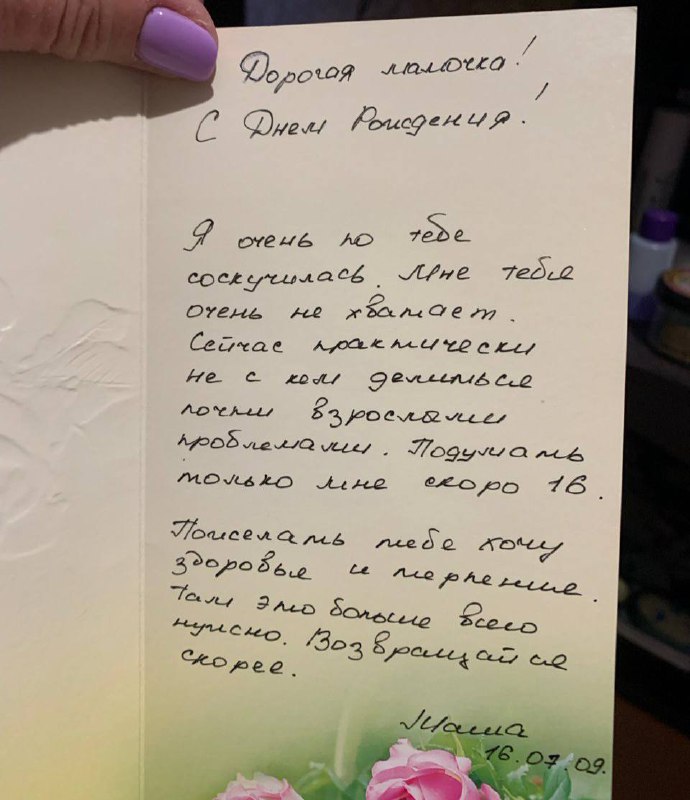 Дорогая мамочка!
С Днем Рождения!
Я очень по тебе
соскучилась. Мне тебя
очень не хватает.
Сейчас практически
не с кем делиться
почти взрослыми
проблемами. Подумать
только мне скоро 16.
Пожелать тебе хочу
здоровье и терпение.
Там это больше всего
нужно. Возвращайся
скорее.
Маша
16.07.09.